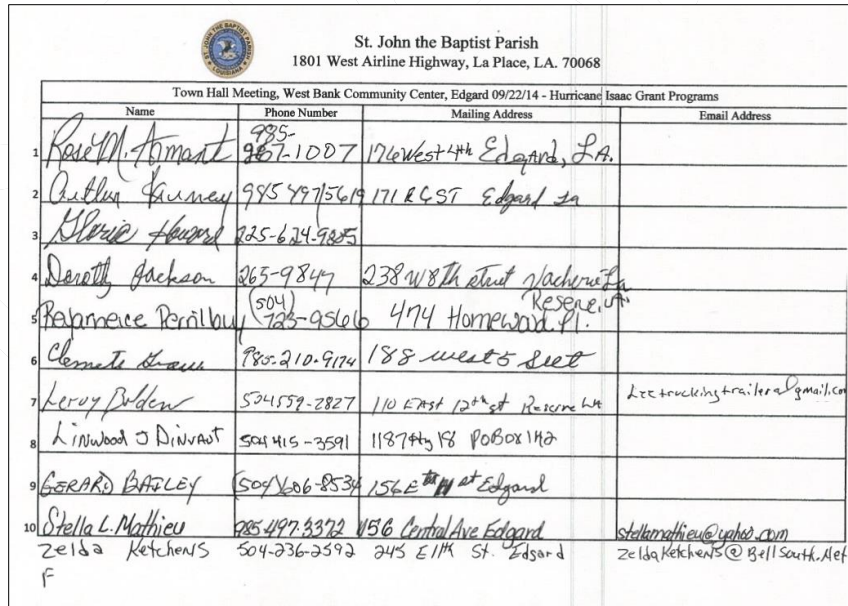 ST. JOHN THE BAPTIST PARISH
LOUISIANA
St. John the Baptist Parish
1801 West Airline Highway, La Place, LA. 70068
Town Hall Meeting, West Bank Community Center, Edgard 09/22/14 - Hurricane Isaac Grant Programs
Name Phone Number Mailing Address Email Address
1 Rose M. Armant 985- 267-1007 176 West 4th Edgard, LA.
2 985 497 5619 171 R C ST Edgard La
3 Gloria Howard 225-624-9885
4 Dorothy Jackson 265-9847 238 W 8th street Vacherie La
5 Perrilloux (504) 723-9566 474 Homewood Pl. Reserve, LA.
6 985-210-9174 188 west 5
7 Leroy Bolden 504 559-2827 110 EAST 12th st Reserve LA
8 LINWOOD J 504 415-3591 1187 Hy 18 PO BOX 142
9 GERARD BAILEY (504) 606-8534 156 E st Edgard
10 Stella L. Mathieu 985.497.3372 156 Central Ave Edgard stellamathieu@yahoo.com
Zelda Ketchens 504-236-2592 245 E 11th St. Edgard ZeldaKetchens@Bellsouth.Net
F